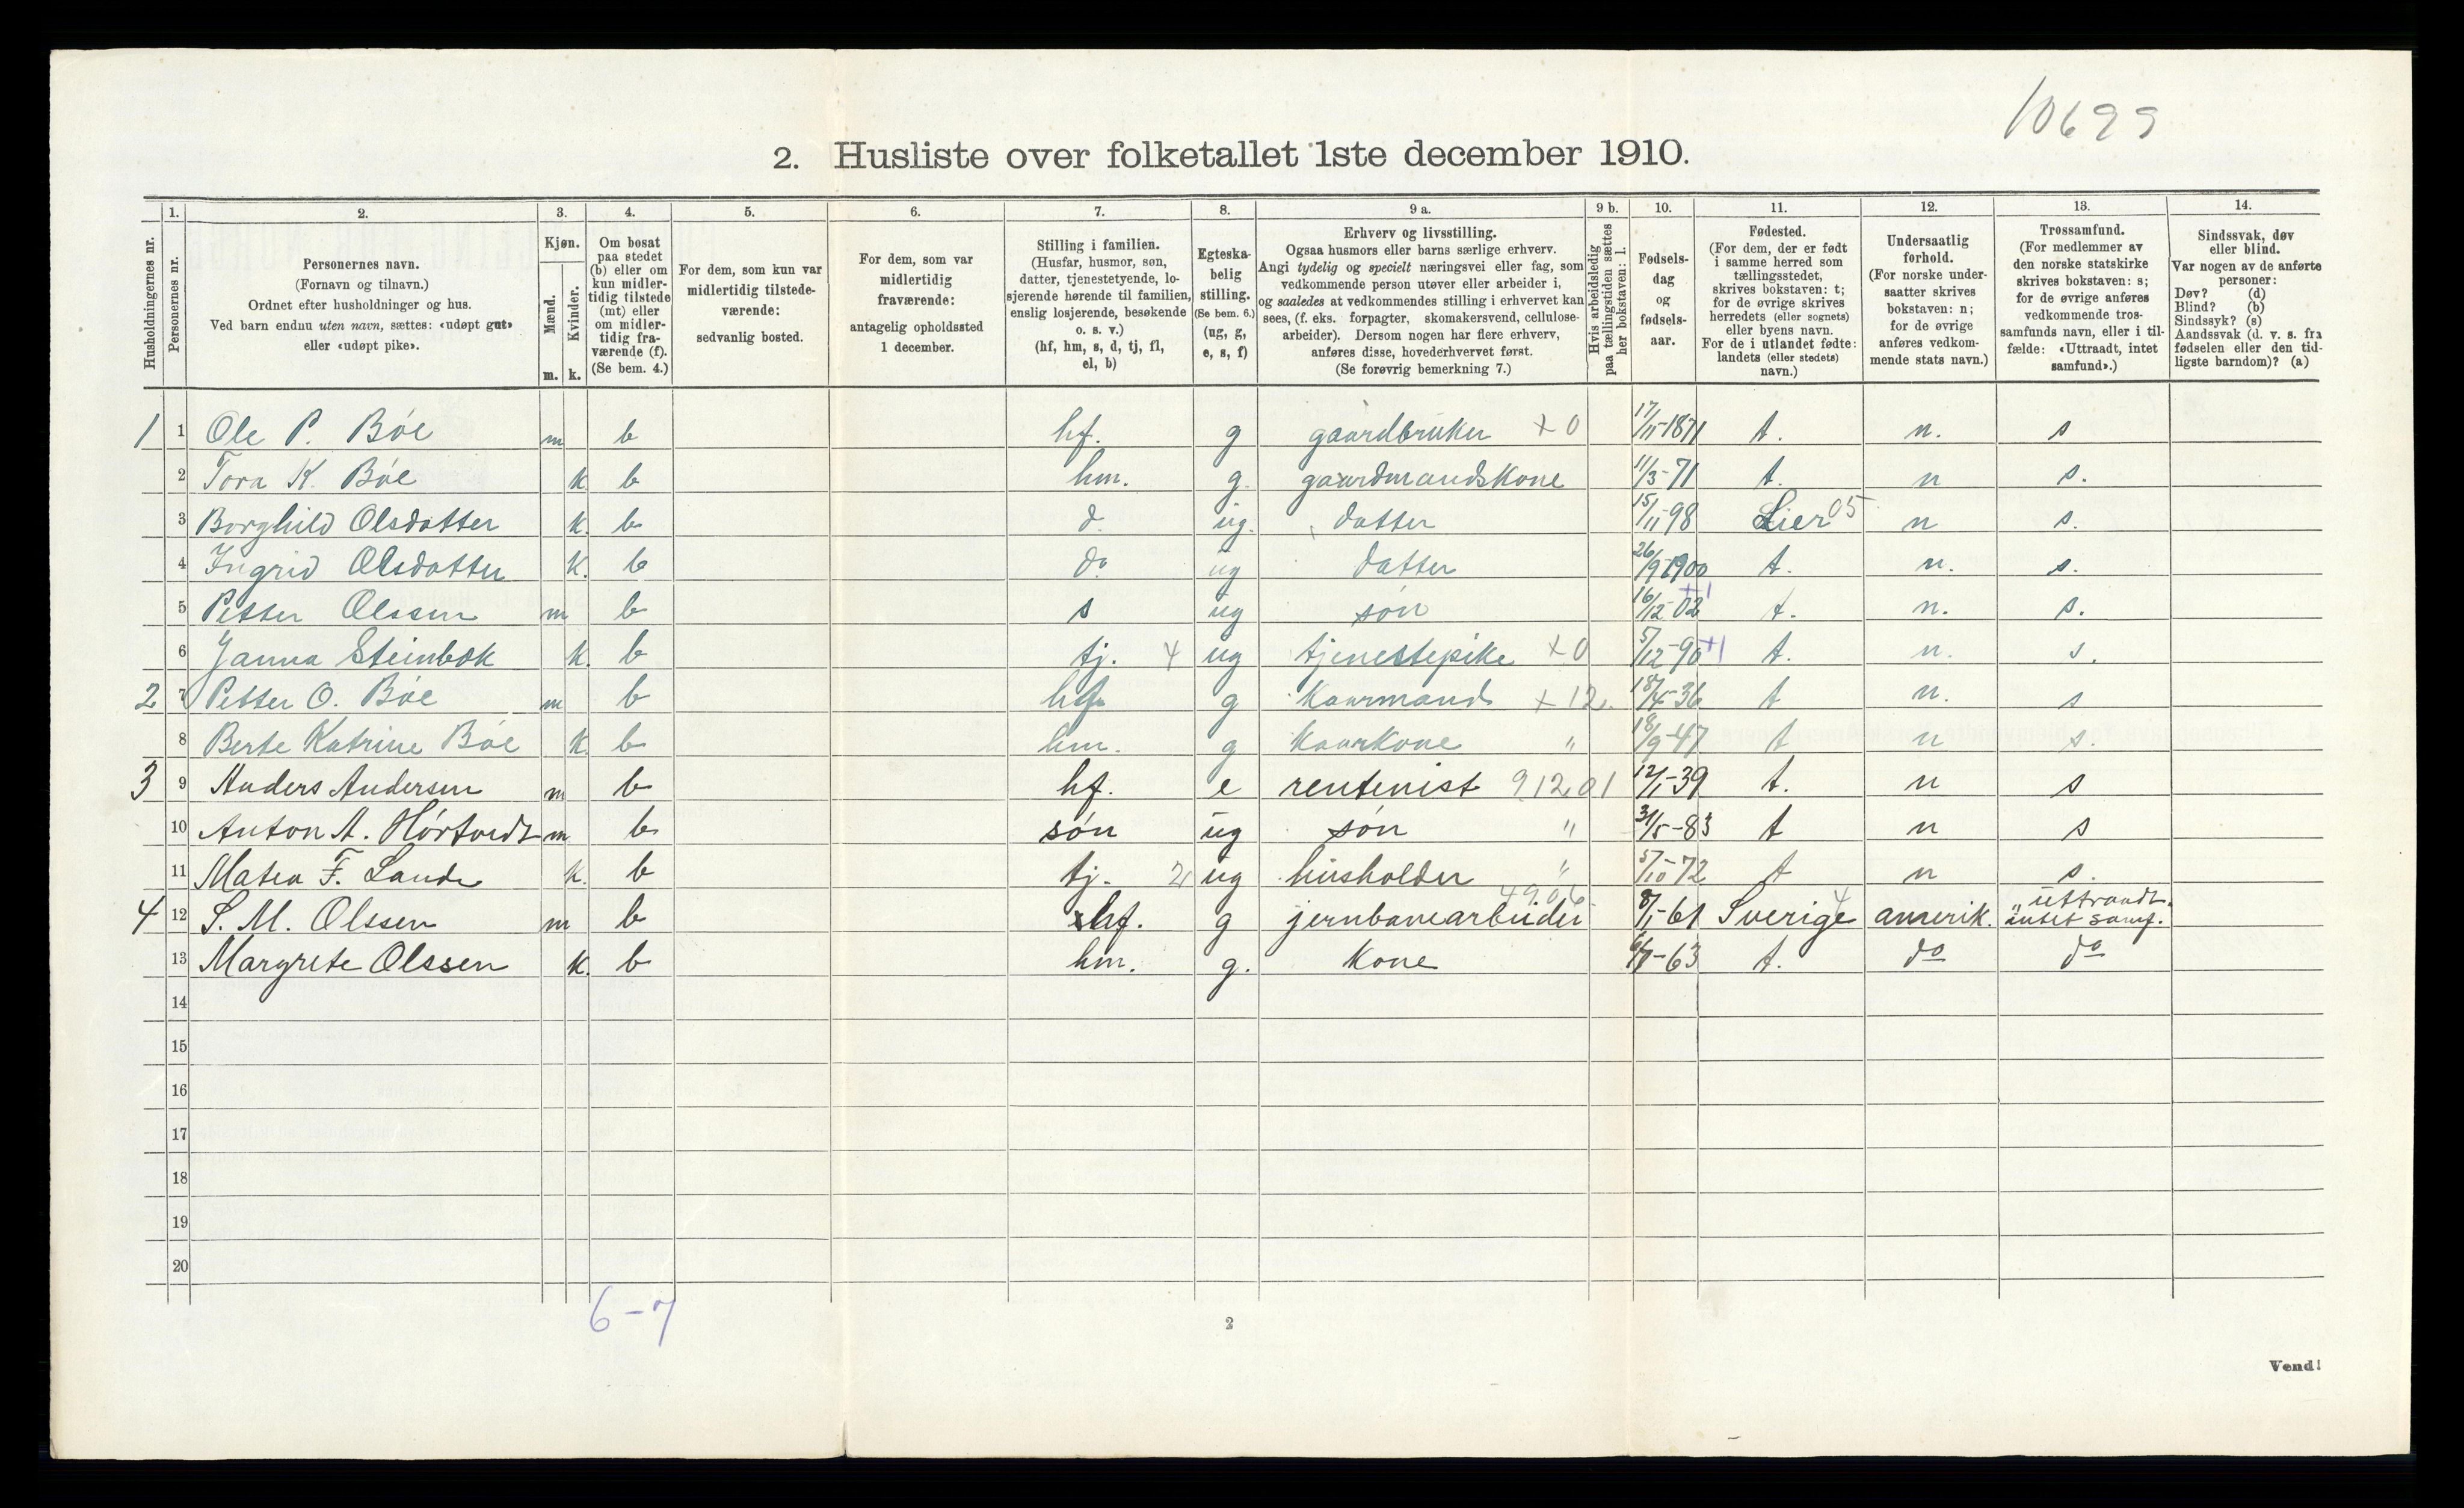 10699
2. Husliste over folketallet 1ste december 1910.
Husholdningernes nr.
1.
Personernes nr.
2.
Personernes navn.
(Fornavn og tilnavn.)
Ordnet efter husholdninger og hus.
Ved barn endnu uten navn, sættes: «udøpt gut»
eller «udøpt pike».
3.
Kjøn.
Mænd.
Kvinder.
m. k.
4.
Om bosat
paa stedet
(b) eller om
kun midler-
tidig tilstede
(mt) eller
om midler-
tidig fra-
værende (f).
(Se bem. 4.)
5.
For dem, som kun var
midlertidig tilstede-
værende:
sedvanlig bosted.
6.
For dem, som var
midlertidig
fraværende:
antagelig opholdssted
1 december.
7.
Stilling i familien.
(Husfar, husmor, søn,
datter, tjenestetyende, lo-
sjerende hørende til familien,
enslig losjerende, besøkende
o. s. v.)
(hf, hm, s, d, tj, fl,
el, b)
8.
Egteska-
belig
stilling.
(Se bem. 6.)
(ug, g,
e, s, f)
9 a.
Erhverv og livsstilling.
Ogsaa husmors eller barns særlige erhverv.
Angi tydelig og specielt næringsvei eller fag, som
vedkommende person utøver eller arbeider i,
og saaledes at vedkommendes stilling i erhvervet kan
sees, (f. eks. forpagter, skomakersvend, cellulose-
arbeider). Dersom nogen har flere erhverv,
anføres disse, hovederhvervet først.
(Se forøvrig bemerkning 7.)
9 b.
Hvis arbeidsledig
paa tællingstiden sættes
her bokstaven: l.
10.
Fødsels-
dag
og
fødsels-
aar.
11.
Fødested.
(For dem, der er født
i samme herred som
tællingsstedet,
skrives bokstaven: t;
for de øvrige skrives
herredets (eller sognets)
eller byens navn.
For de i utlandet fødte:
landets (eller stedets)
navn.)
12.
Undersaatlig
forhold.
(For norske under-
saatter skrives
bokstaven: n;
for de øvrige
anføres vedkom-
mende stats navn.)
13.
Trossamfund.
(For medlemmer av
den norske statskirke
skrives bokstaven: s;
for de øvrige anføres
vedkommende tros-
samfunds navn, eller i til-
fælde: «Uttraadt, intet
samfund».)
14.
Sindssvak, døv
eller blind.
Var nogen av de anførte
personer:
Døv? (d)
Blind? (b)
Sindssyk? (s)
Aandssvak (d. v. s. fra
fødselen eller den tid-
ligste barndom)? (a)
1 1 Ole P. Bøe m b hf. g gaardbruker + 0 17/11-1871 t. n. s
2 Tora K. Bøe k b hm. g. gaardmandskone 11/3-71 t. n s.
3 Borghild Olsdatter k. b d. ug. datter 15/11-98 Lier 05 n s.
4 Ingrid Olsdatter k. b do ug datter 26/9-1900 t. n. s.
5 Petter Olssen m b s ug søn 16/12-02 +1 t. n. s.
6 Janna Steinbok k. b tj. 4 ug tjenestepike + 0 5/12-90 +1 t. n. s.
2 7 Petter O. Bøe m b hf. g kaarmand + 12. 18/4-36 t n. s
8 Berte Katrine Bøe k. b hm. g kaarkone " 18/9-47 t n s.
3 9 Anders Andersen m b hf. e rentenist 91201 12/1-39 t. n s
10 Anton A. Hørtvedt m b søn ug søn " 31/5-83 t n s
11 Matea F. Lande k. b tj. 2 ug husholder " 5/10-72 t n s.
4 12 S. M. Olssen m b hf. g jernbanearbeider 49.06 8/1-61 Sverige 4 amerik. "uttraadt. intet samf.
13 Margrete Olssen k. b hm. g. kone -63 t. do do
14
15
16
17
18
19
20
6-7
2
Vend!